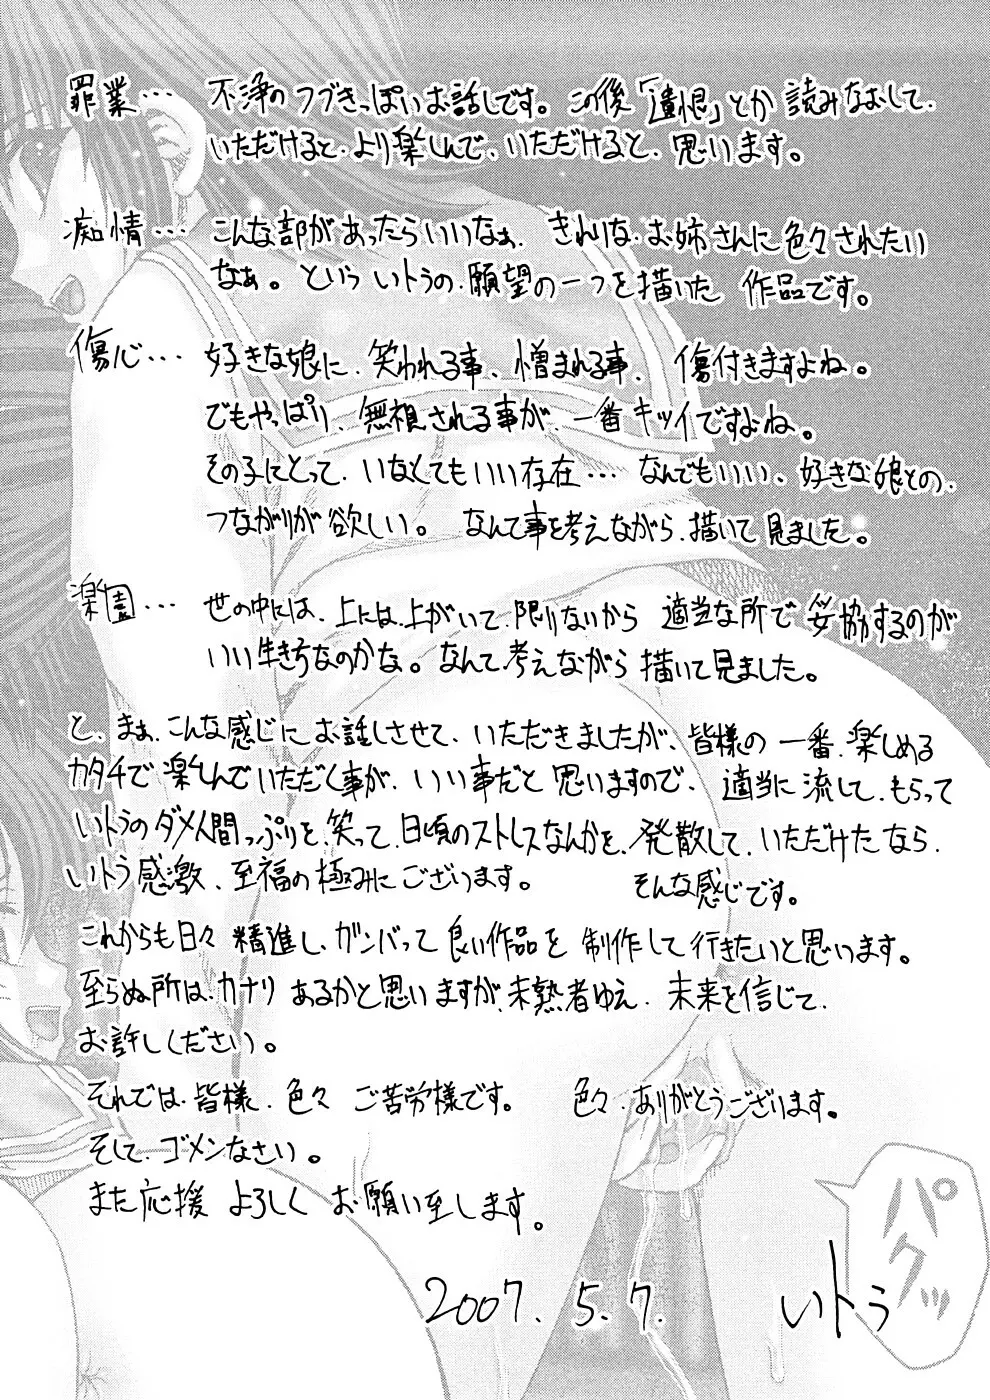 罪業… 不浄のつづきっぽいお話しです。この後「遺恨」とか読みなおして、
いただけると、より楽しんで、いただけると、思います。
痴情… こんな部があったらいいなぁ、きれいな、お姉さんに色々されたい
なぁ。という いトうの、願望の一つを描いた 作品です。
傷心… 好きな娘に、笑われる事、憎まれる事、傷付きますよね。
でもやっぱり、無視される事が、一番キツイですよね。
その子にとって、いなくてもいい存在… なんでもいい、好きな娘との、
つながりが欲しい。なんて事を考えながら、描いて見ました。
楽園… 世の中には、上には、上がいて、限りないから 適当な所で妥協するのが
いい生き方なのかな。なんて考えながら描いて見ました。
と、まぁ、こんな感じに お話しさせて、いただきましたが、皆様の 一番、楽しめる
カタチで楽しんでいただく事が、いい事だと思いますので、適当に流して、もらって
いトうのダメ人間っぷりを、笑って、日頃のストレスなんかを、発散して、いただけたなら、
いトう感激、至福の極みにございます。 そんな感じです。
これからも日々 精進し、ガンバって良い作品を 制作して行きたいと思います。
至らぬ所は、カナリ あるかと思いますが、未熟者ゆえ、未来を信じて、
お許しください。
それでは、皆様、色々 ご苦労様です。 色々、ありがとうございます。
そして、ゴメンなさい。
また応援 よろしく お願い至します。
2007. 5. 7. いトう
パクッ